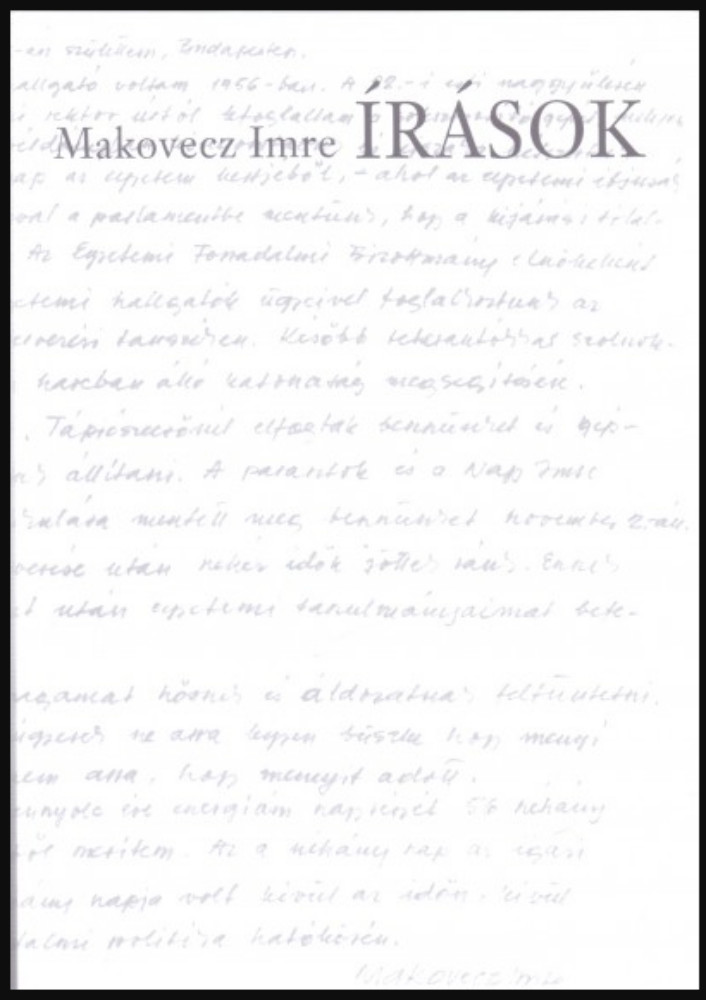 -en születtem, Budapesten.
hallgató voltam 1956-ban. A 22.-i esti nagygyűlésen
Makovecz Imre ÍRÁSOK
az egyetem kertjéből, - ahol az egyetemi ifjúság
val a parlamentbe mentünk, hogy a kijárási tilal-
Az Egyetemi Forradalmi Bizottmány elnökeként
egyetemi hallgatók ügyeivel foglalkoztunk az
tanszéken. Később teherautókkal szolnok-
harcban álló katonaság megsegítésén.
. Tápiószecsőnél elfogták bennünket és gép-
állítani. A parasztok és a Nagy Imre
mentett meg bennünket november 2-án.
verése után nehéz idők jöttek ránk. Ennek
után egyetemi tanulmányaimat bete-
magamat hősnek és áldozatnak feltüntetni.
ne arra legyen büszke hogy mennyi
nem arra, hogy mennyit adott.
éve energiám nagyrészét 56 néhány
ből merítem. Az a néhány nap az igazi
napja volt kívül az időn. kívül
politika hatókörén.
Makovecz Imre